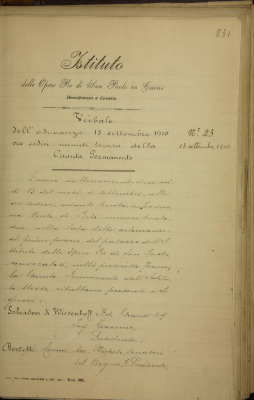 831
Istituto
delle Opere Pie di San Paolo in Torino
Beneficenza e Credito
Verbale
dell'adunanza 13 settembre 1910
ore sedici, minuti trenta della
Giunta Permanente
N.° 23
13 settembre 1910
L'anno millenovecentodieci, addì
13 del mese di settembre, alle
ore sedici, minuti trenta, in Torino,
via Monte di Pietà, numero trenta-
due, nella Sala delle adunanze
al primo piano del palazzo dell'I-
stituto delle Opere Pie di San Paolo
convocatasi, nelle prescritte forme,
la Giunta Permanente dell'Istitu-
to stesso, risultano presenti i si-
gnori:
Salvadori di Wiesenhoff Nob. Grand. Uff.
Avv. Giacomo,
Presidente;
Bertetti Comm. Avv. Michele